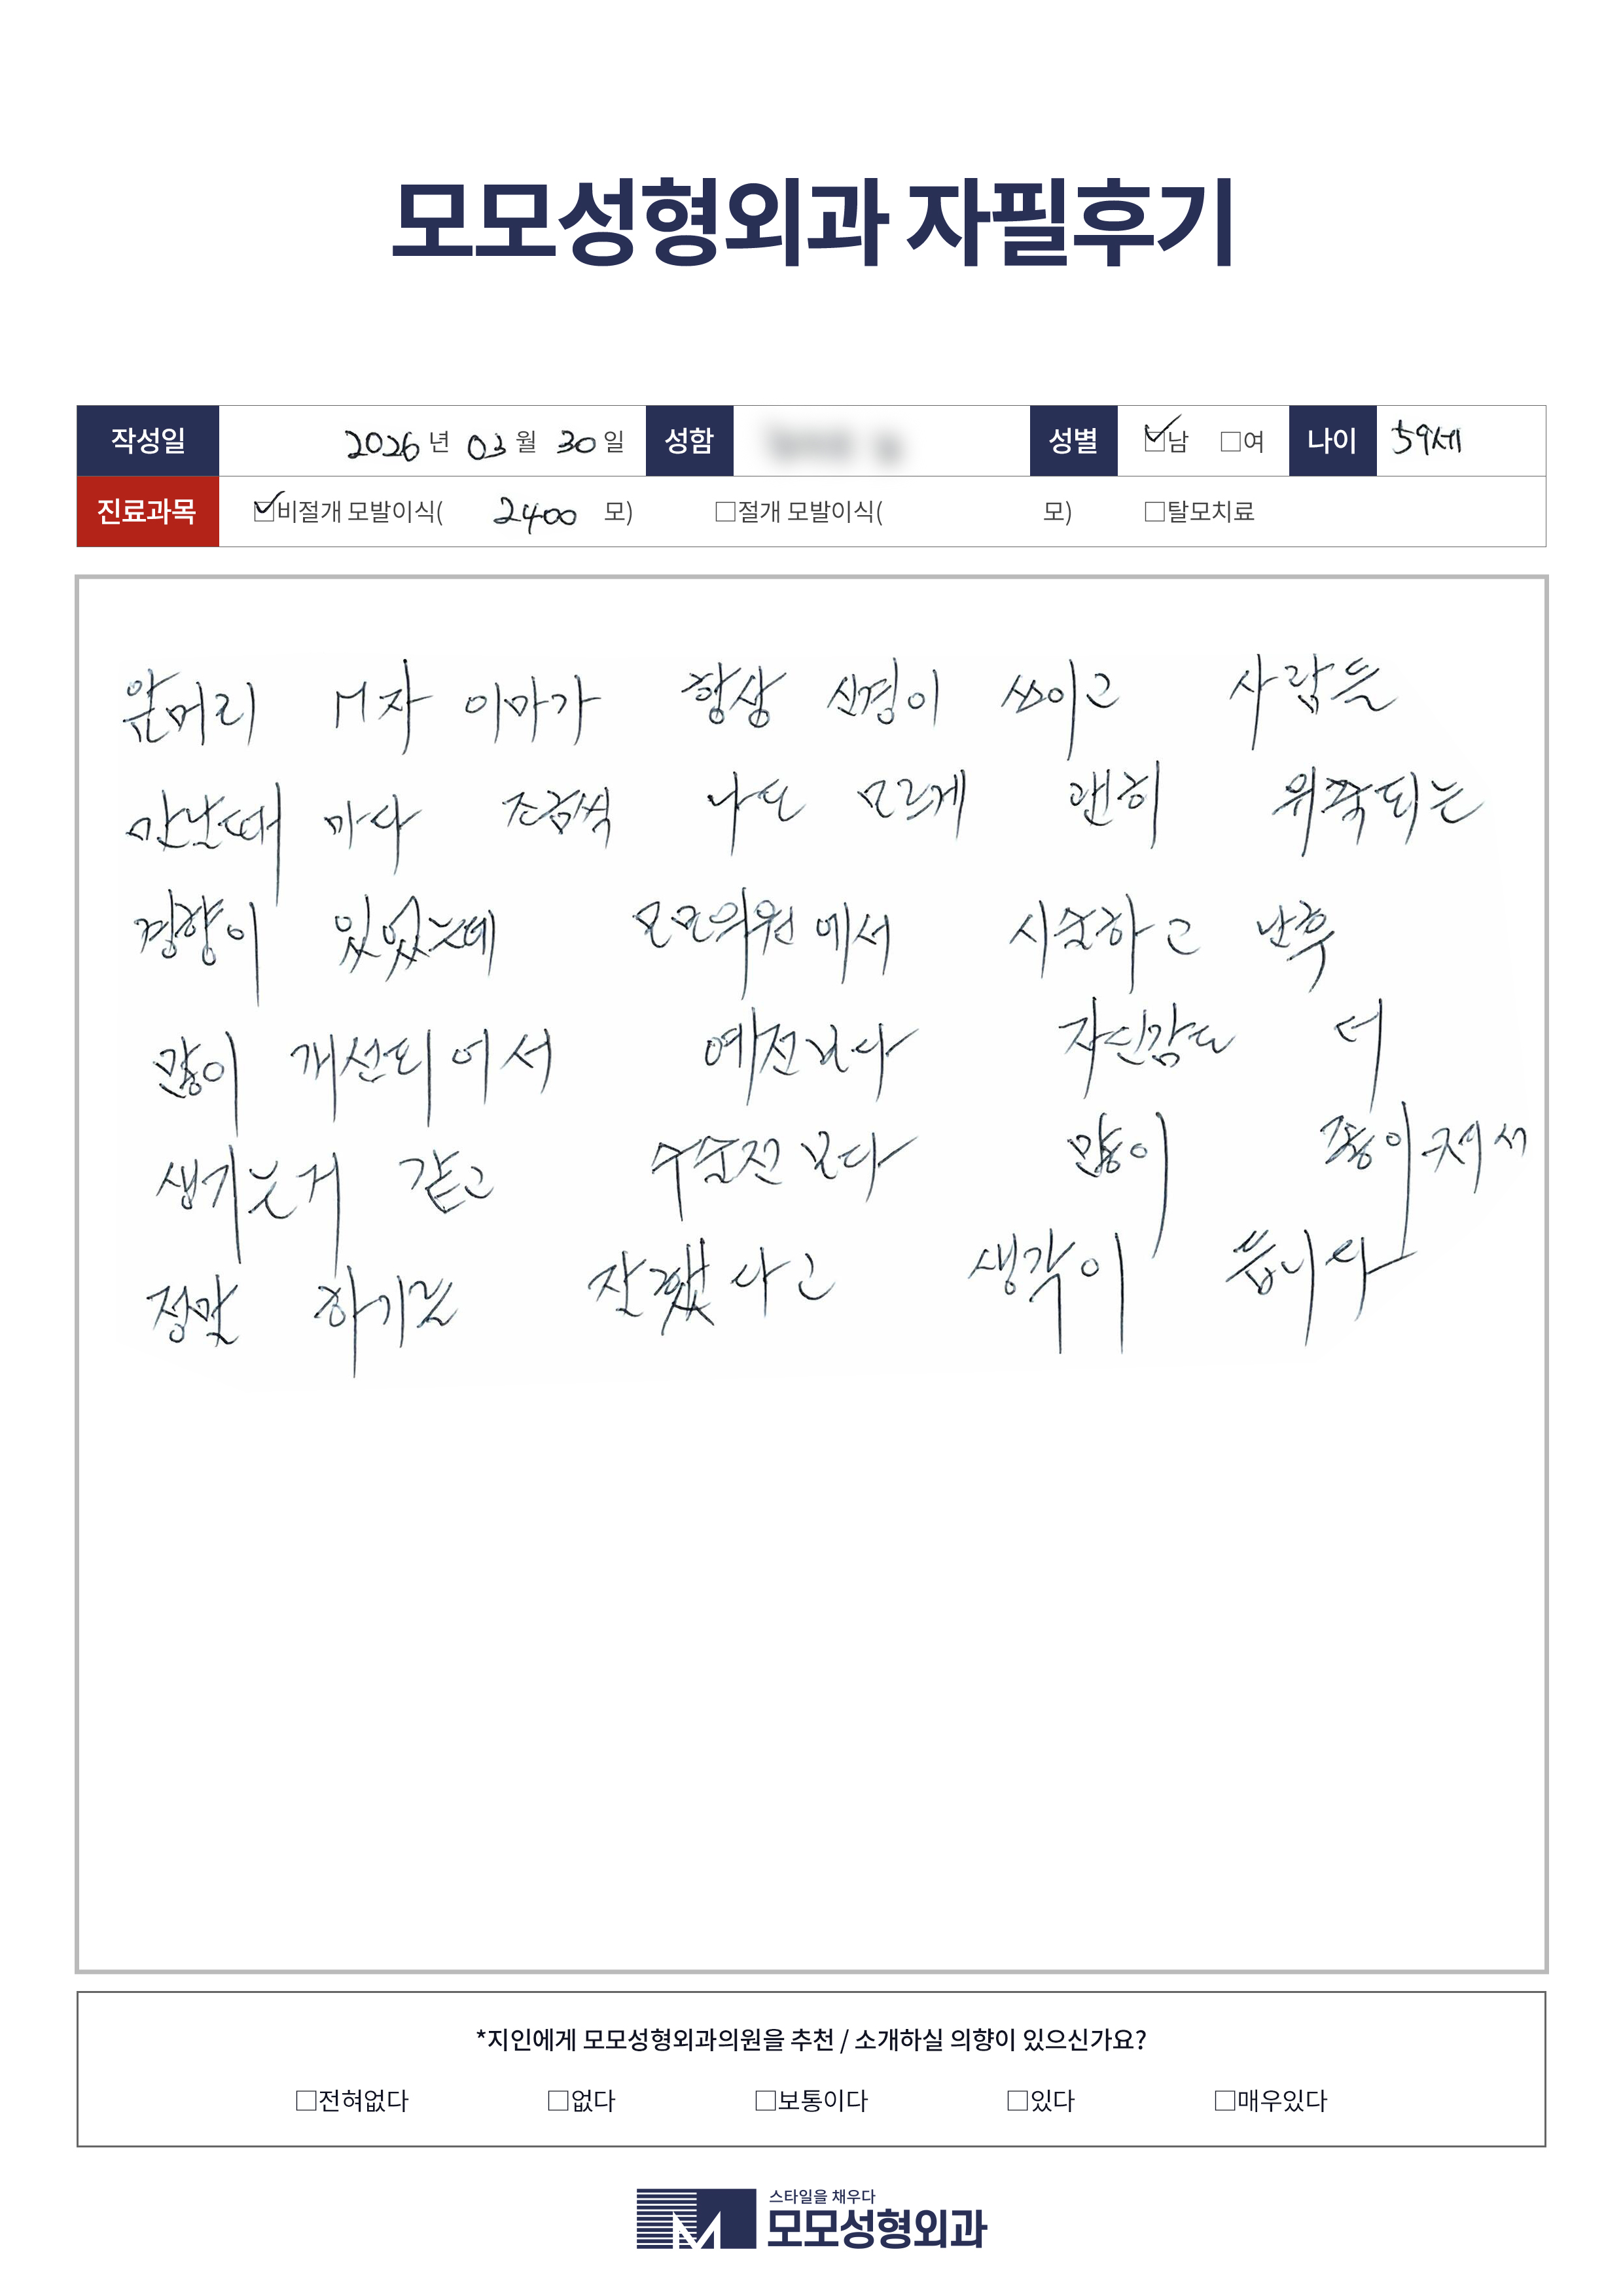 모모성형외과 자필후기
작성일 2026 년 03 월 30 일 성함 성별 ☑남 □여 나이 59세
진료과목 ☑비절개 모발이식( 2400 모) □절개 모발이식( 모) □탈모치료
앞머리 M자 이마가 항상 신경이 쓰이고 사람들
만날때 마다 조금씩 나도 모르게 괜히 위축되는
경향이 있었는데 모모의원에서 시술하고 난후
많이 개선되어서 예전보다 자신감도 더
생기는거 같고 수술전보다 많이 좋아져서
정말 하기를 잘했다고 생각이 듭니다
*지인에게 모모성형외과의원을 추천 / 소개하실 의향이 있으신가요?
□전혀없다 □없다 □보통이다 □있다 □매우있다
스타일을 채우다
모모성형외과